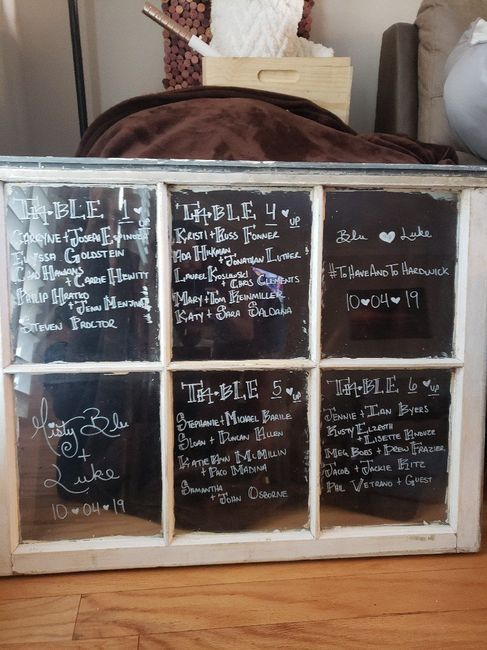 TABLE 1 UP
Joseph Espinosa
Elyssa Goldstein
Chad Hawkins
+ Carrie Hewitt
Philip
+ Jenn
Steven Proctor
TABLE 4 UP
Kristi + Russ Fonner
Ada Hickman
+ Jonathan Luther
Laurel Koslowski
+ Chris Clements
Mary + Tom Reinmiller
Katy + Sara Saldana
Blu ♥ Luke
#ToHaveAndToHardwick
10♥04♥19
Misty Blu
+
Luke
10♥04♥19
TABLE 5 UP
Stephanie + Michael Barile
Sloan + Duncan Allen
Katie Ann McMillin
+ Paco Madina
Samantha
+ John Osborne
TABLE 6 UP
Jennie + Ian Byers
Rusty Elzroth
+ Lisette
Meg Boas + Drew Frazier
Jacob + Jackie Ritz
Phil Vetrano + Guest